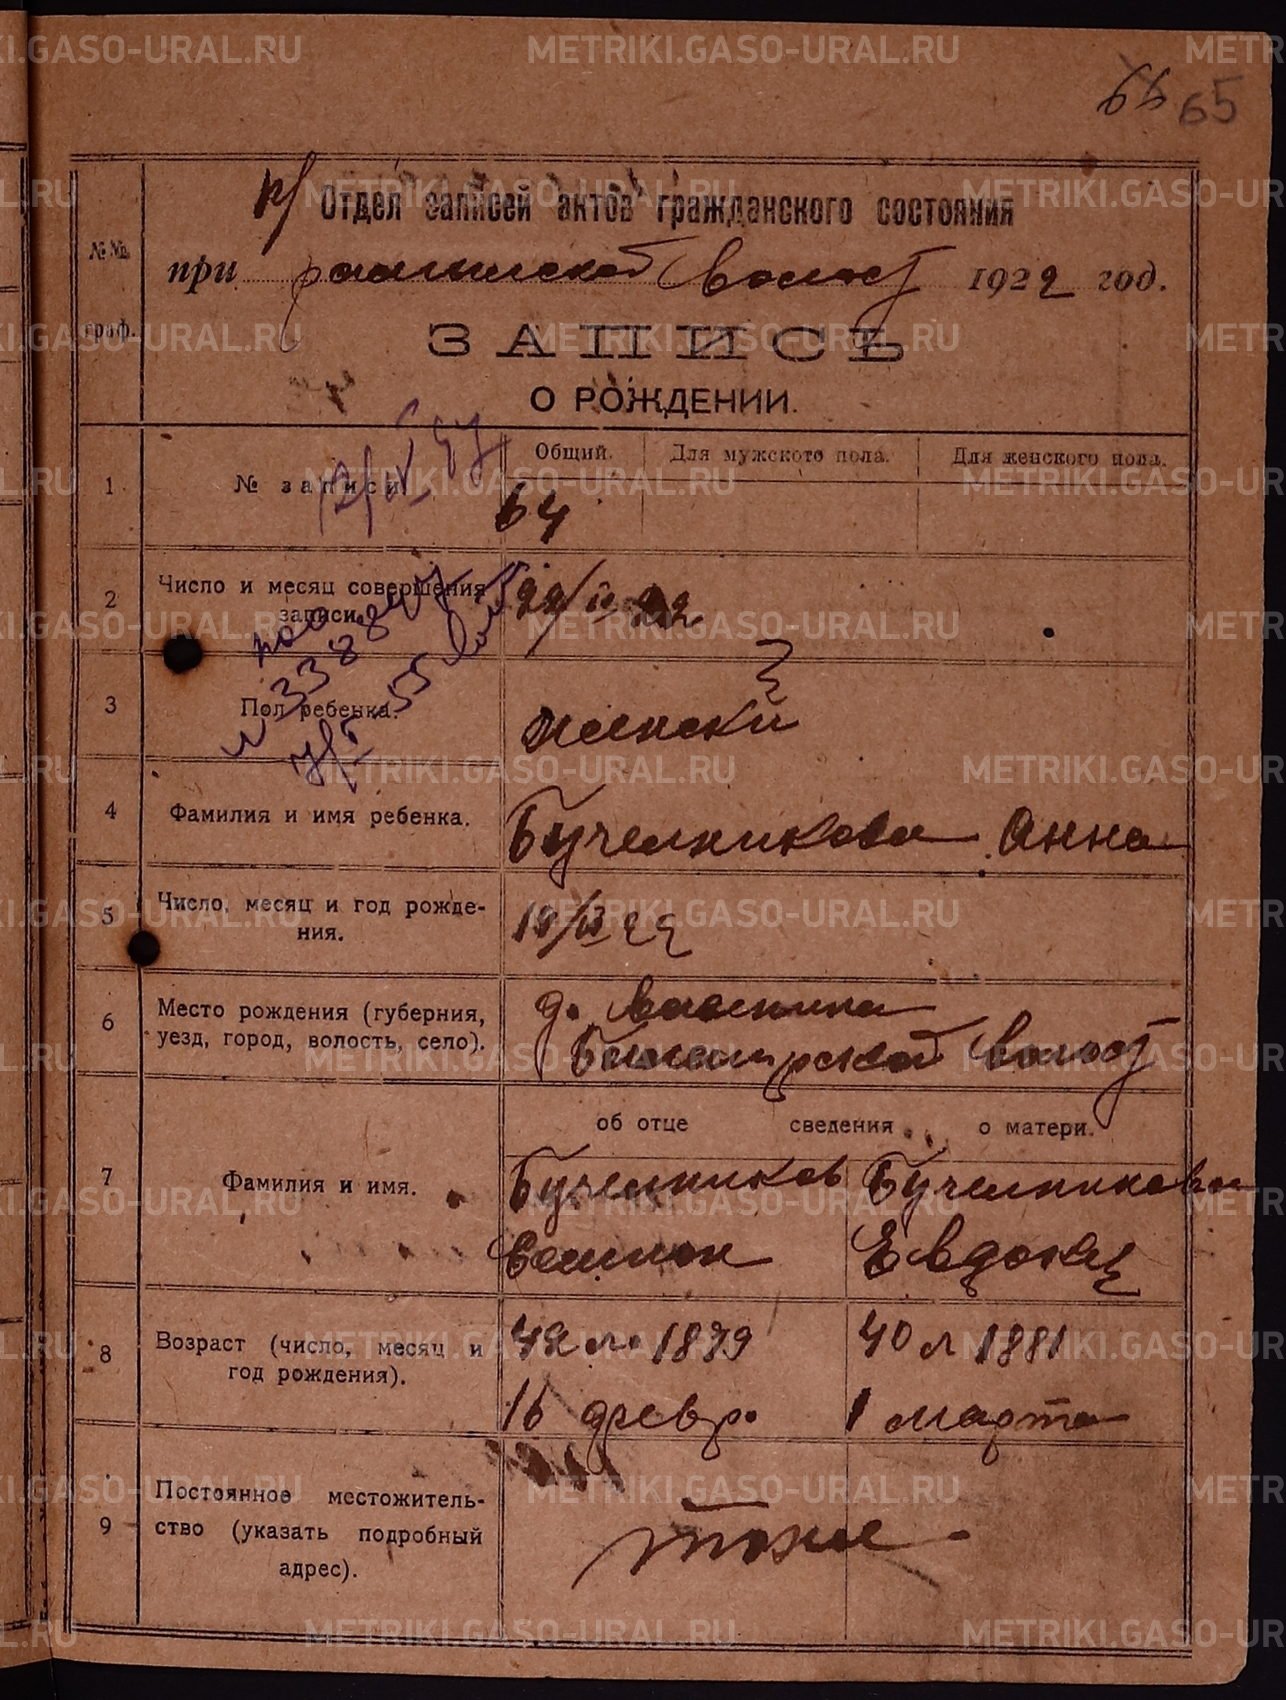 METRIKI.GASO-URAL.RU
66 65
п/Отдел записей актов гражданского состояния
№№ граф.
при волост 1922 год.
ЗАПИСЬ
О РОЖДЕНИИ.
1 № записи
Общий. Для мужского пола. Для женского пола.
64
2 Число и месяц совершения
записи.
22/IV 22
3 Пол ребенка.
женский
4 Фамилия и имя ребенка.
Бучельникова Анна
5 Число, месяц и год рожде-
ния.
6 Место рождения (губерния,
уезд, город, волость, село).
д.
волост
об отце сведения о матери.
7 Фамилия и имя.
Бучельников Бучельникова
Евдокия
8 Возраст (число, месяц и
год рождения).
42 л. 1879 40 л 1881
16 февр. 1 марта
9 Постоянное местожитель-
ство (указать подробный
адрес).
тоже